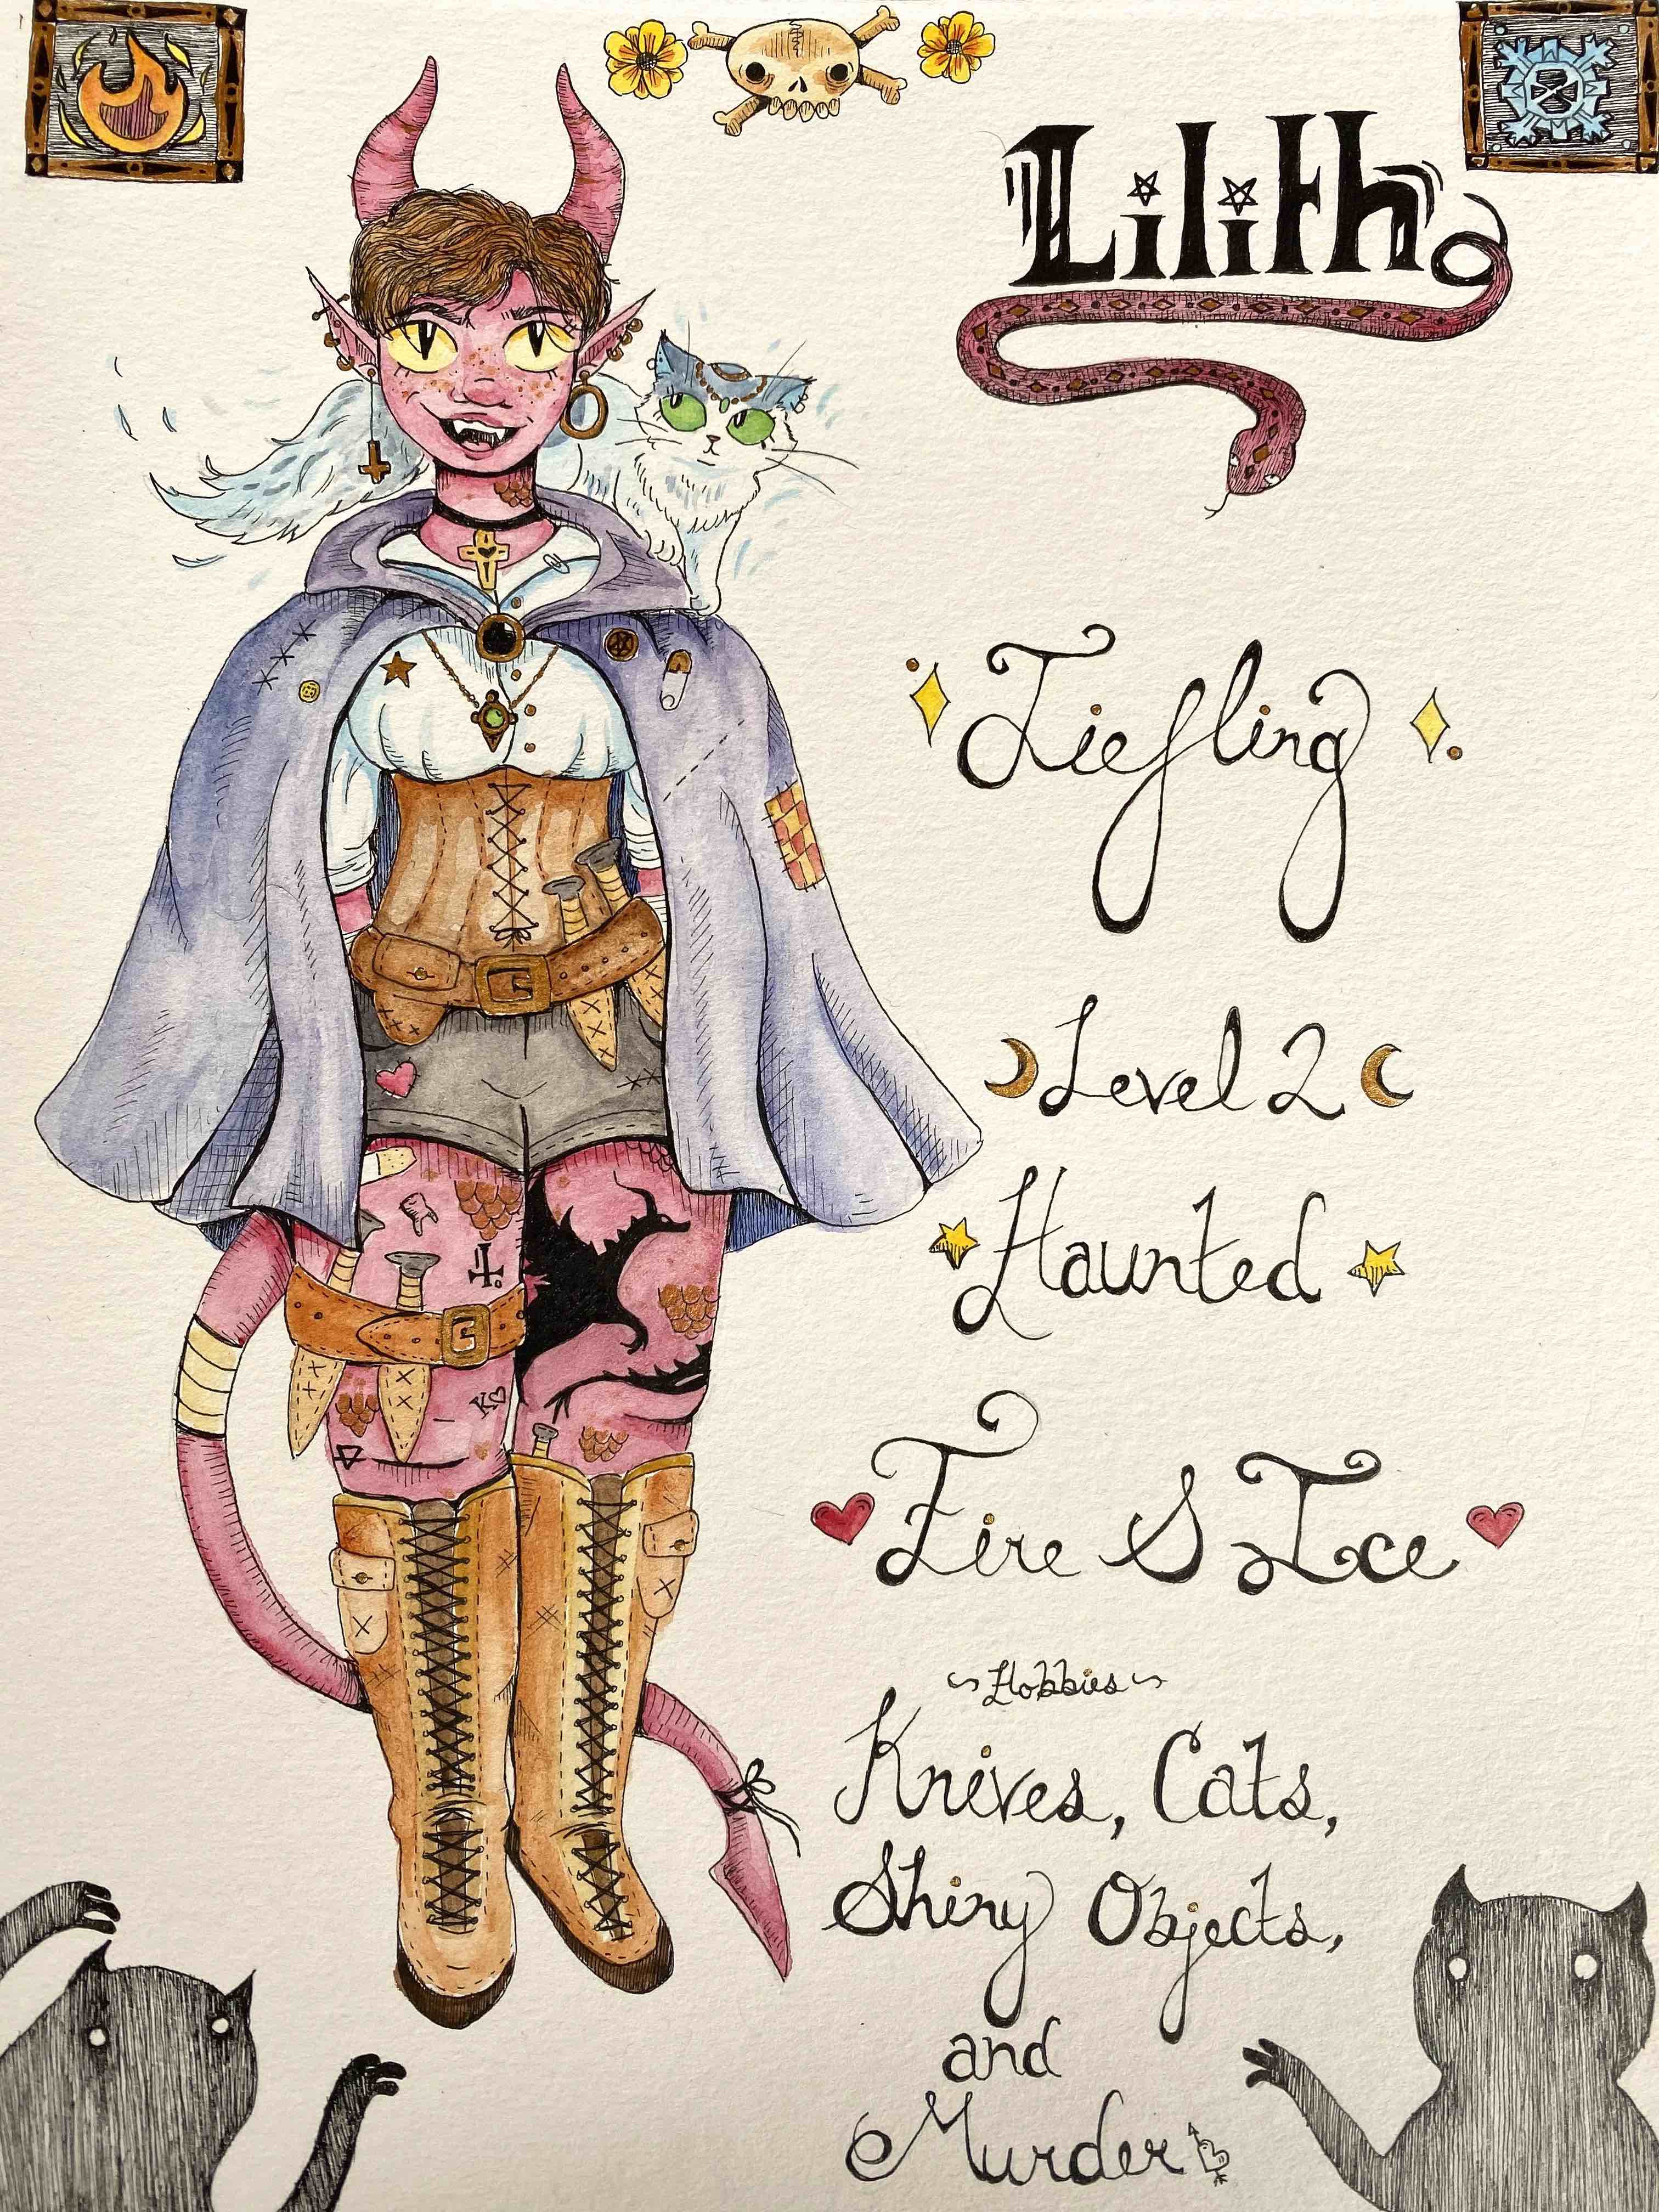 Lilith
Tiefling
Level 2
Haunted
Fire & Ice
~Hobbies~
Knives, Cats,
Shiny Objects,
and
Murder
K